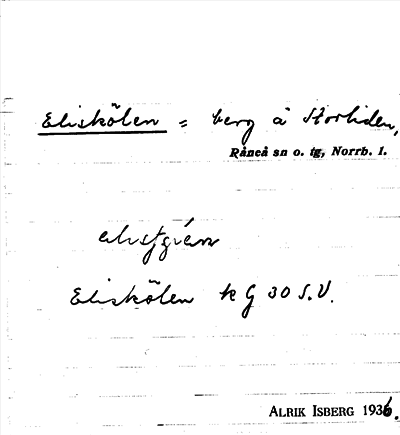 Eliskölen = berg å Storliden,
Råneå sn o. tg, Norrb. l.
Eliskölen k G 30 S.V.
ALRIK ISBERG 1936.